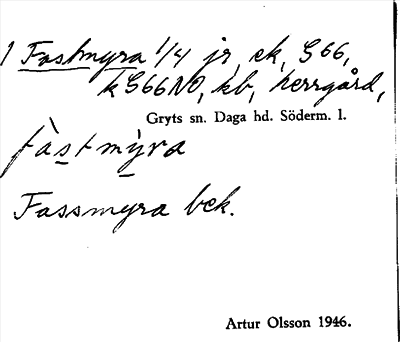 1 Fastmyra 1/4 jr, ek, G66,
k G66NO, kb, herrgård,
Gryts sn. Daga hd. Söderm. l.
fàstmỳra
Fassmyra bek.
Artur Olsson 1946.